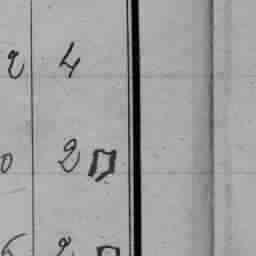 2 4
0 2
6 2